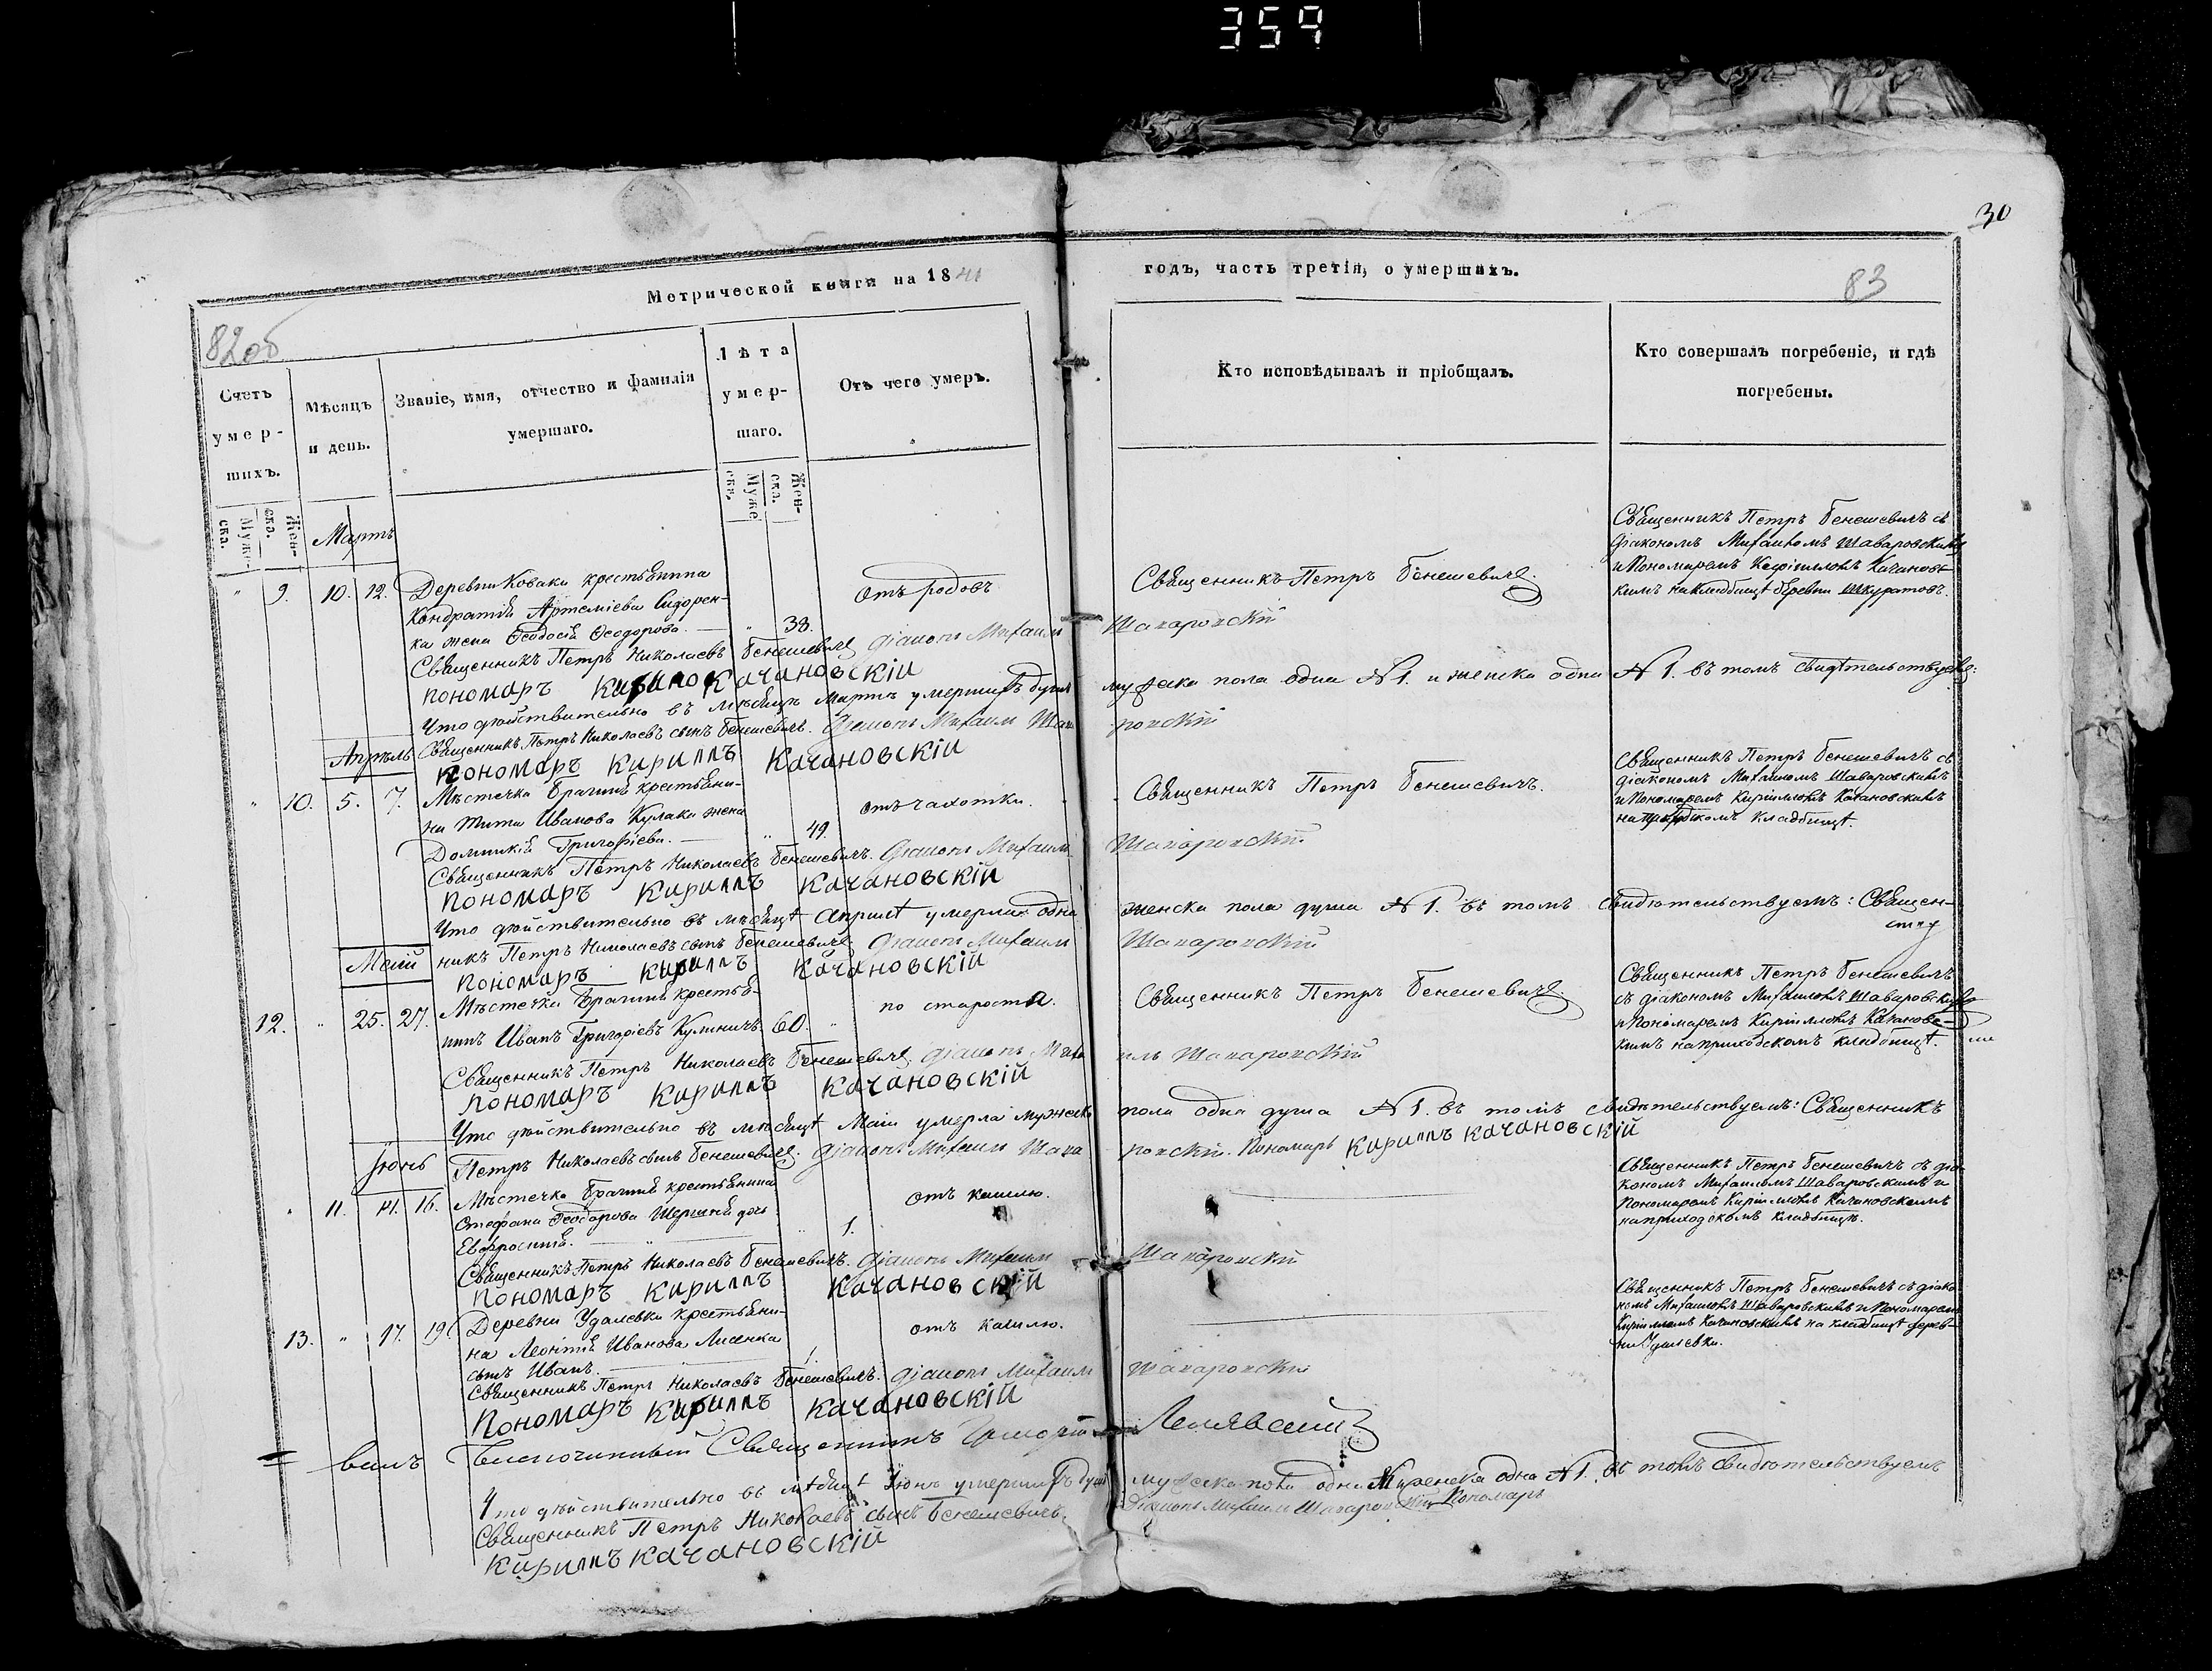 359
30
Метрической книги на 1841
годъ, часть третія, о умершихъ.
82об
83
Счетъ умершихъ.
Мѣсяцъ и день.
Званіе, имя, отчество и фамилія умершаго.
Лѣта умершаго.
Отъ чего умеръ.
Кто исповѣдывалъ и пріобщалъ.
Кто совершалъ погребеніе, и гдѣ погребены.
Мужеска.
Женска.
Мужеска.
Женска.
Мартъ
" 9. 10. 12. Деревни Коваки крестьянина
Кондратія Артеміева Сидорен-
ка жена Ѳеодосія Ѳеодорова. — " 38.
отъ родовъ
Священникъ Петръ Бенешевичъ.
Священникъ Петръ Бенешевичъ съ
діакономъ Михаиломъ Шаваровскимъ
и Пономаремъ Кирилломъ Качановс-
кимъ на кладбищѣ деревни Шкуратовъ.
Священникъ Петръ Николаевъ Бенешевичъ діаконъ Михаилъ Шаваровскій
пономаръ Кирилъ Качановскій
Что дѣйствительно въ мѣсяцѣ Мартѣ умершихъ душъ мужеска пола одна № 1. и женска одна № 1. въ томъ свидѣтельствуемъ:
Священникъ Петръ Николаевъ сынъ Бенешевичъ. Діаконъ Михаилъ Шаваровскій
Апрѣль
пономаръ Кириллъ Качановскій
" 10. 5. 7. Мѣстечка Брагиня крестьяни-
на Тита Иванова Кулака жена
Домникія Григоріева. — " 49.
отъ чахотки.
Священникъ Петръ Бенешевичъ.
Священникъ Петръ Бенешевичъ съ
діакономъ Михаиломъ Шаваровскимъ
и Пономаремъ Кирилломъ Качановскимъ
на приходскомъ кладбищѣ.
Священникъ Петръ Николаевъ Бенешевичъ. Діаконъ Михаилъ Шаваровскій
пономаръ Кириллъ Качановскій
Что дѣйствительно въ мѣсяцѣ Априлѣ умерла одна женска пола душа № 1. въ томъ свидѣтельствуемъ: Священ-
никъ Петръ Николаевъ сынъ Бенешевичъ Діаконъ Михаилъ Шаваровскій
Маій
пономаръ Кириллъ Качановскій
12. " 25. 27. Мѣстечка Брагиня крестья-
нинъ Иванъ Григоріевъ Кулиничъ. 60. "
по староста.
Священникъ Петръ Бенешевичъ.
Священникъ Петръ Бенешевичъ
съ діакономъ Михаиломъ Шаваровскимъ
и Пономаремъ Кирилломъ Качановс-
кимъ на приходскомъ кладбищѣ.
Священникъ Петръ Николаевъ Бенешевичъ діаконъ Михаилъ Шаваровскій
пономаръ Кириллъ Качановскій
Что дѣйствительно въ мѣсяцѣ Маіи умерла мужеска пола одна душа № 1. въ томъ свидѣтельствуемъ: Священникъ
Іюнь
Петръ Николаевъ сынъ Бенешевичъ. Діаконъ Михаилъ Шаваровскій. Пономаръ Кириллъ Качановскій
" 11. 14. 16. Мѣстечка Брагиня крестьянина
Стефана Ѳеодорова дочь
Евфросинія. — " 1.
отъ кашлю.
Священникъ Петръ Бенешевичъ съ діа-
кономъ Михаиломъ Шаваровскимъ и
Пономаремъ Кирилломъ Качановскимъ
на приходскомъ кладбищѣ.
Священникъ Петръ Николаевъ Бенешевичъ. Діаконъ Михаилъ Шаваровскій
пономаръ Кириллъ Качановскій
13. " 17. 19. Деревни Удалевки крестьяни-
на Леонтія Иванова Лисенка
сынъ Иванъ. 1.
отъ кашлю.
Священникъ Петръ Бенешевичъ съ діако-
номъ Михаиломъ Шаваровскимъ и Пономаремъ
Кирилломъ Качановскимъ на кладбищѣ дерев-
ни Удалевки.
Священникъ Петръ Николаевъ Бенешевичъ. Діаконъ Михаилъ Шаваровскій
Пономаръ Кириллъ Качановскій
Благочинный Священникъ
Что дѣйствительно въ мѣсяцѣ Іюнѣ умершихъ душъ мужеска пола одна № 1 женска одна № 1. въ томъ свидѣтельствуемъ
Священникъ Петръ Николаевъ сынъ Бенешевичъ. Діаконъ Михаилъ Шаваровскій Пономаръ
Кириллъ Качановскій